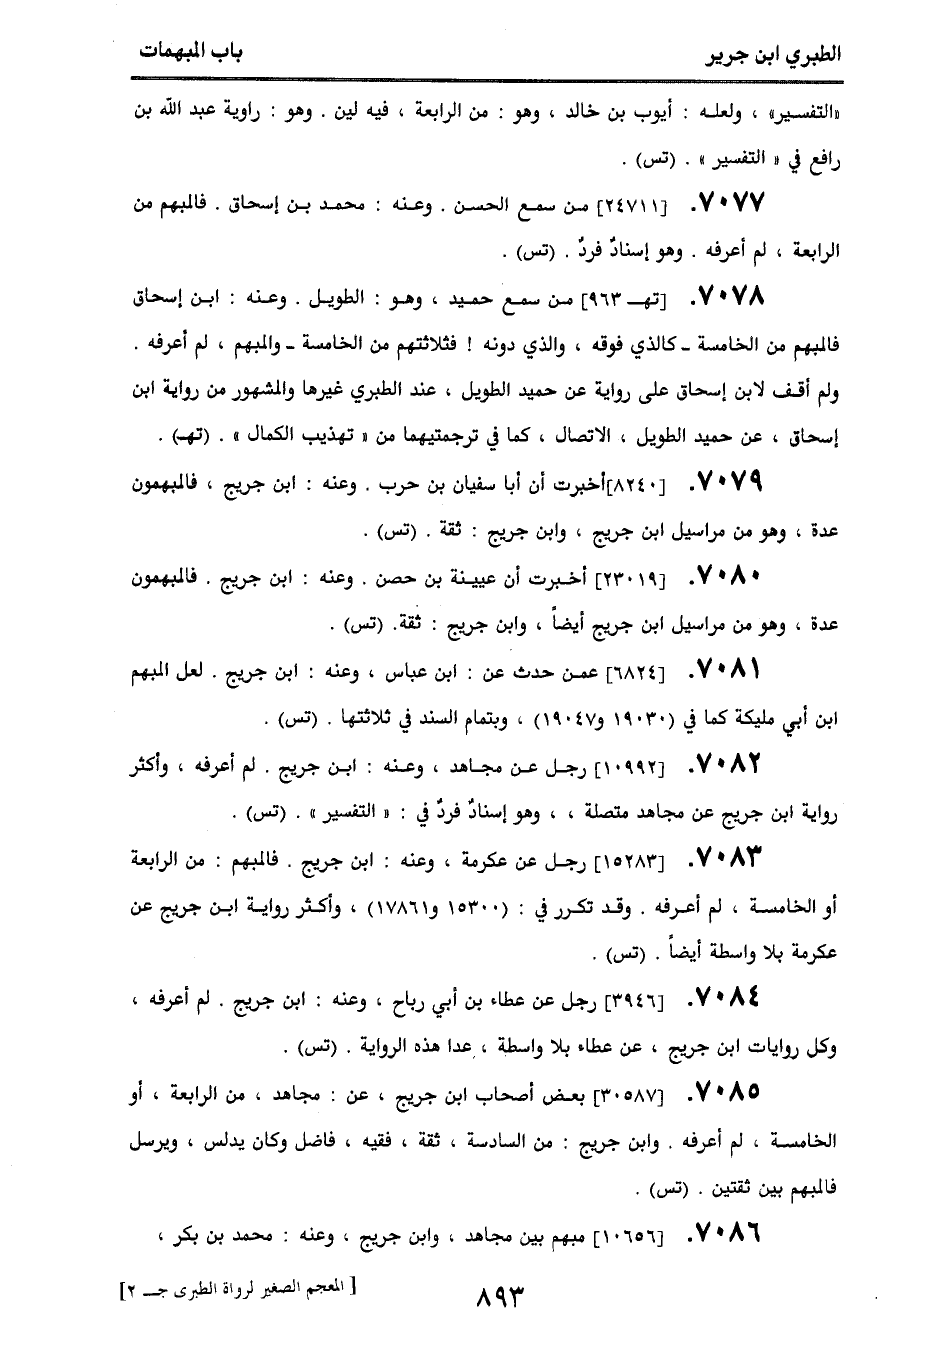 الطبري ابن جرير باب المبهمات
«التفسير» ، ولعله : أيوب بن خالد ، وهو : من الرابعة ، فيه لين . وهو : راوية عبد الله بن
رافع في « التفسير » . (تس) .
٧٠٧٧. [٢٤٧١١] من سمع الحسن . وعنه : محمد بن إسحاق . فالمبهم من
الرابعة ، لم أعرفه . وهو إسنادٌ فردٌ . (تس) .
٧٠٧٨. [تهـ ٩٦٣] من سمع حميد ، وهو : الطويل . وعنه : ابن إسحاق
فالمبهم من الخامسة ـ كالذي فوقه ، والذي دونه ! فثلاثتهم من الخامسة ـ والمبهم ، لم أعرفه .
ولم أقف لابن إسحاق على رواية عن حميد الطويل ، عند الطبري غيرها والمشهور من رواية ابن
إسحاق ، عن حميد الطويل ، الاتصال ، كما في ترجمتيهما من « تهذيب الكمال » . (تهـ) .
٧٠٧٩. [٨٢٤٠]أخبرت أن أبا سفيان بن حرب . وعنه : ابن جريج ، فالمبهمون
عدة ، وهو من مراسيل ابن جريج ، وابن جريج : ثقة . (تس) .
٧٠٨٠. [٢٣٠١٩] أخبرت أن عيينة بن حصن . وعنه : ابن جريج . فالمبهمون
عدة ، وهو من مراسيل ابن جريج أيضاً ، وابن جريج : ثقة. (تس) .
٧٠٨١. [٦٨٢٤] عمن حدث عن : ابن عباس ، وعنه : ابن جريج . لعل المبهم
ابن أبي مليكة كما في (١٩٠٣٠ و١٩٠٤٧) ، وبتمام السند في ثلاثتها . (تس) .
٧٠٨٢. [١٠٩٩٢] رجل عن مجاهد ، وعنه : ابن جريج . لم أعرفه ، وأكثر
رواية ابن جريج عن مجاهد متصلة ، ، وهو إسنادٌ فردٌ في : « التفسير » . (تس) .
٧٠٨٣. [١٥٢٨٣] رجل عن عكرمة ، وعنه : ابن جريج . فالمبهم : من الرابعة
أو الخامسة ، لم أعرفه . وقد تكرر في : (١٥٣٠٠ و١٧٨٦١) ، وأكثر رواية ابن جريج عن
عكرمة بلا واسطة أيضاً . (تس) .
٧٠٨٤. [٣٩٤٦] رجل عن عطاء بن أبي رباح ، وعنه : ابن جريج . لم أعرفه ،
وكل روايات ابن جريج ، عن عطاء بلا واسطة ، عدا هذه الرواية . (تس) .
٧٠٨٥. [٣٠٥٨٧] بعض أصحاب ابن جريج ، عن : مجاهد ، من الرابعة ، أو
الخامسة ، لم أعرفه . وابن جريج : من السادسة ، ثقة ، فقيه ، فاضل وكان يدلس ، ويرسل
فالمبهم بين ثقتين . (تس) .
٧٠٨٦. [١٠٦٥٦] مبهم بين مجاهد ، وابن جريج ، وعنه : محمد بن بكر ،
٨٩٣ [ المعجم الصغير لرواة الطبرى جـ ٢]